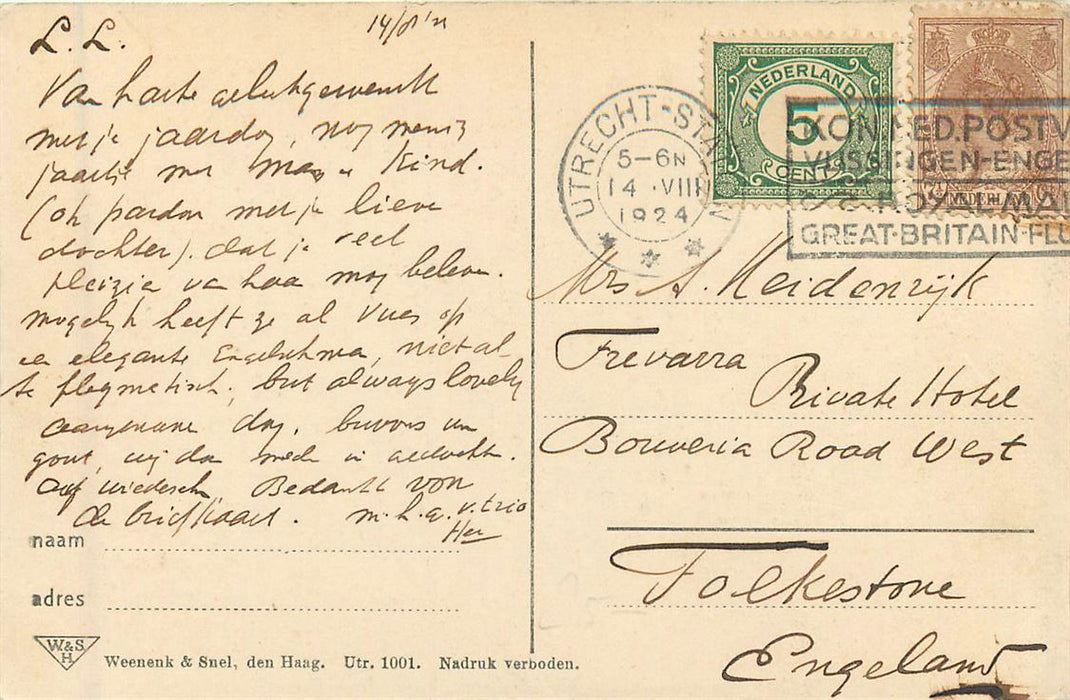 L. L. 14/8'24
Van harte gelukgewenscht
met je jaardag, nog menig
jaartje met man en kind.
(oh pardon met je lieve
dochter). dat je veel
pleizier van haar mag beleven.
mogelijk heeft ze al vues op
een elegante Engelschman, niet al
te flegmatisch, but always lovely
aangename dag, buvons un
gout, wij doen mede in gedachten.
auf wiedersehn, Bedankt voor
de briefkaart. m. h. g. v. trio
naam
adres
W&S
H
Weenenk & Snel, den Haag. Utr. 1001. Nadruk verboden.
UTRECHT-STATION
5-6N
14 VIII
1924
NEDERLAND
5
CENT
NEDERLAND
KON. NED. POSTV
VLISSINGEN-ENGE
ROYAL MAI
GREAT-BRITAIN-FLU
Mrs A. Heidenrijk
Trevarra
Private Hotel
Bouveria Road West
Folkestone
Engeland